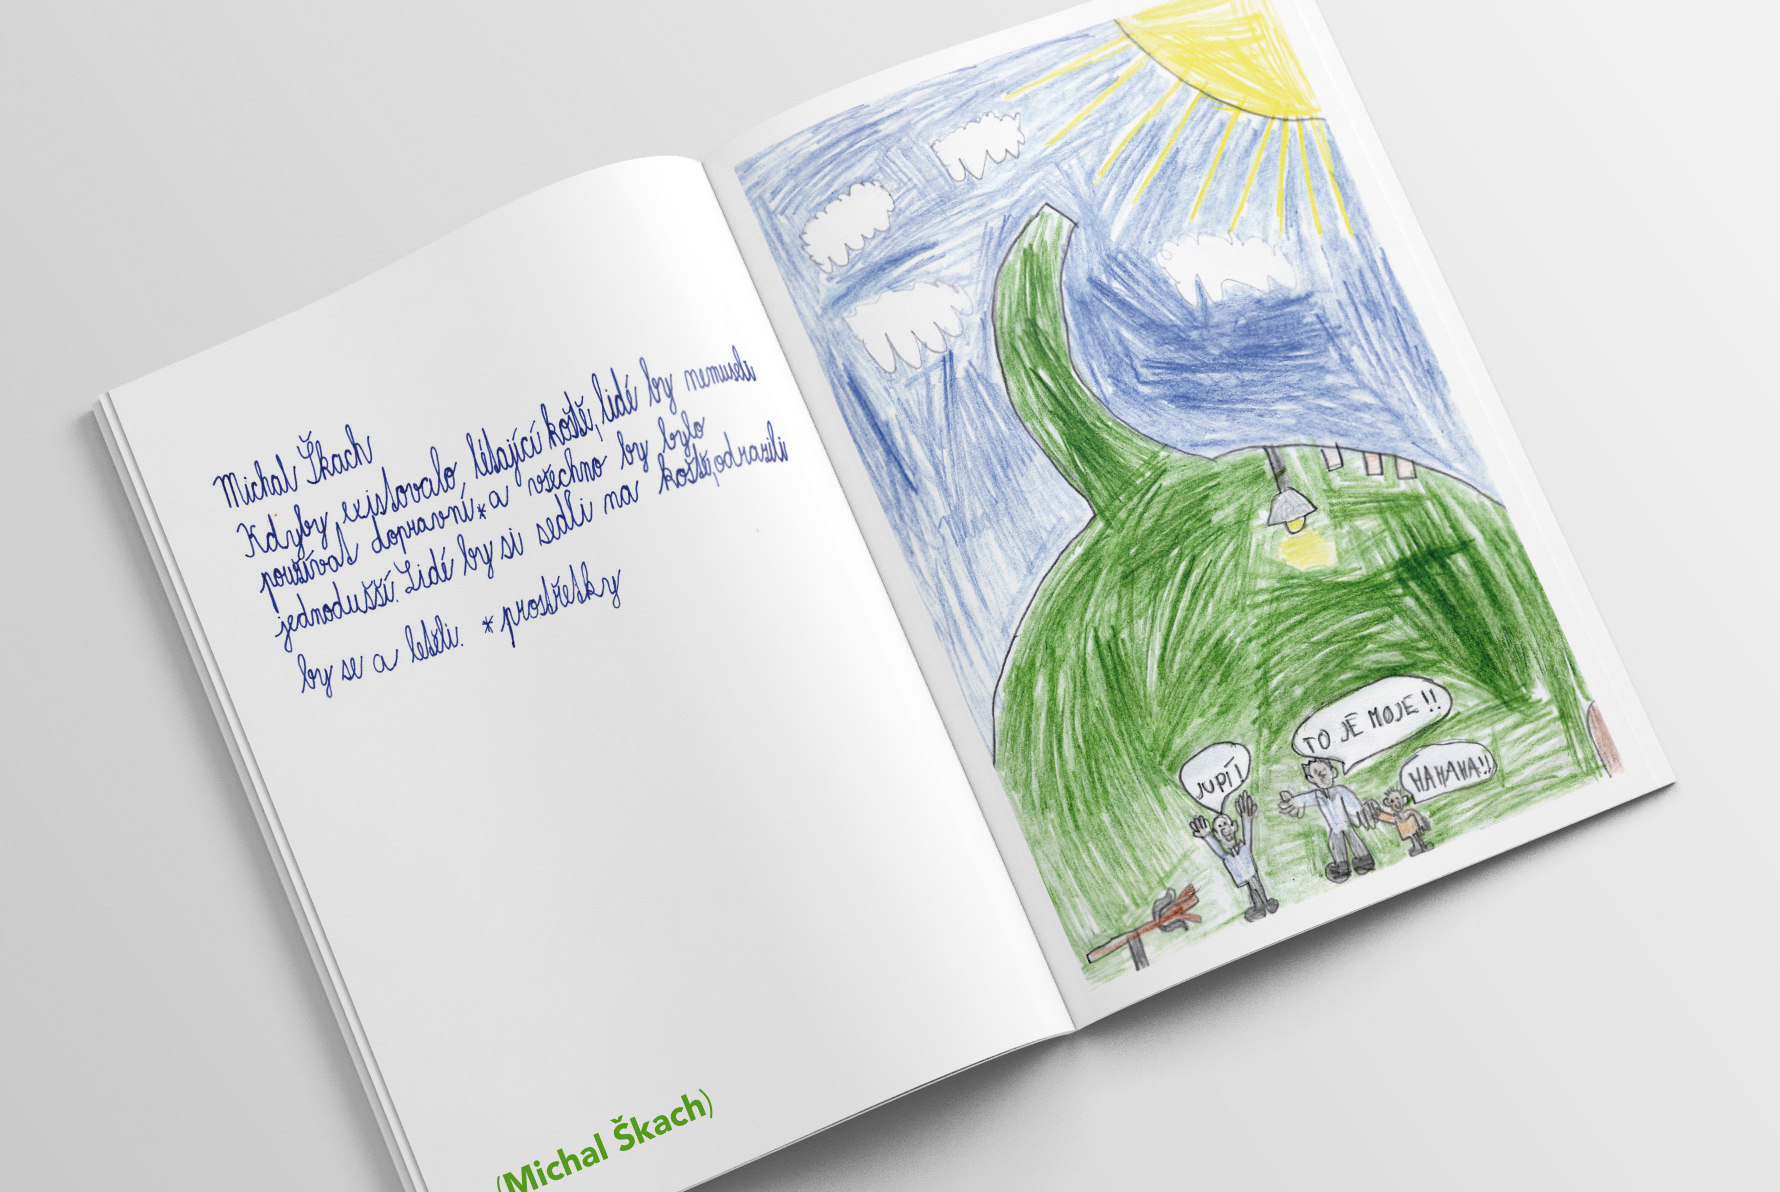 Michal Škach
Kdyby existovalo létající koště, lidé by nemuseli
používat dopravní * a všechno by bylo
jednodušší. Lidé by si sedli na koště, odrazili
by se a letěli. * prostředky
(Michal Škach)
TO JE MOJE!!
JUPÍ!
HAHAHA!!